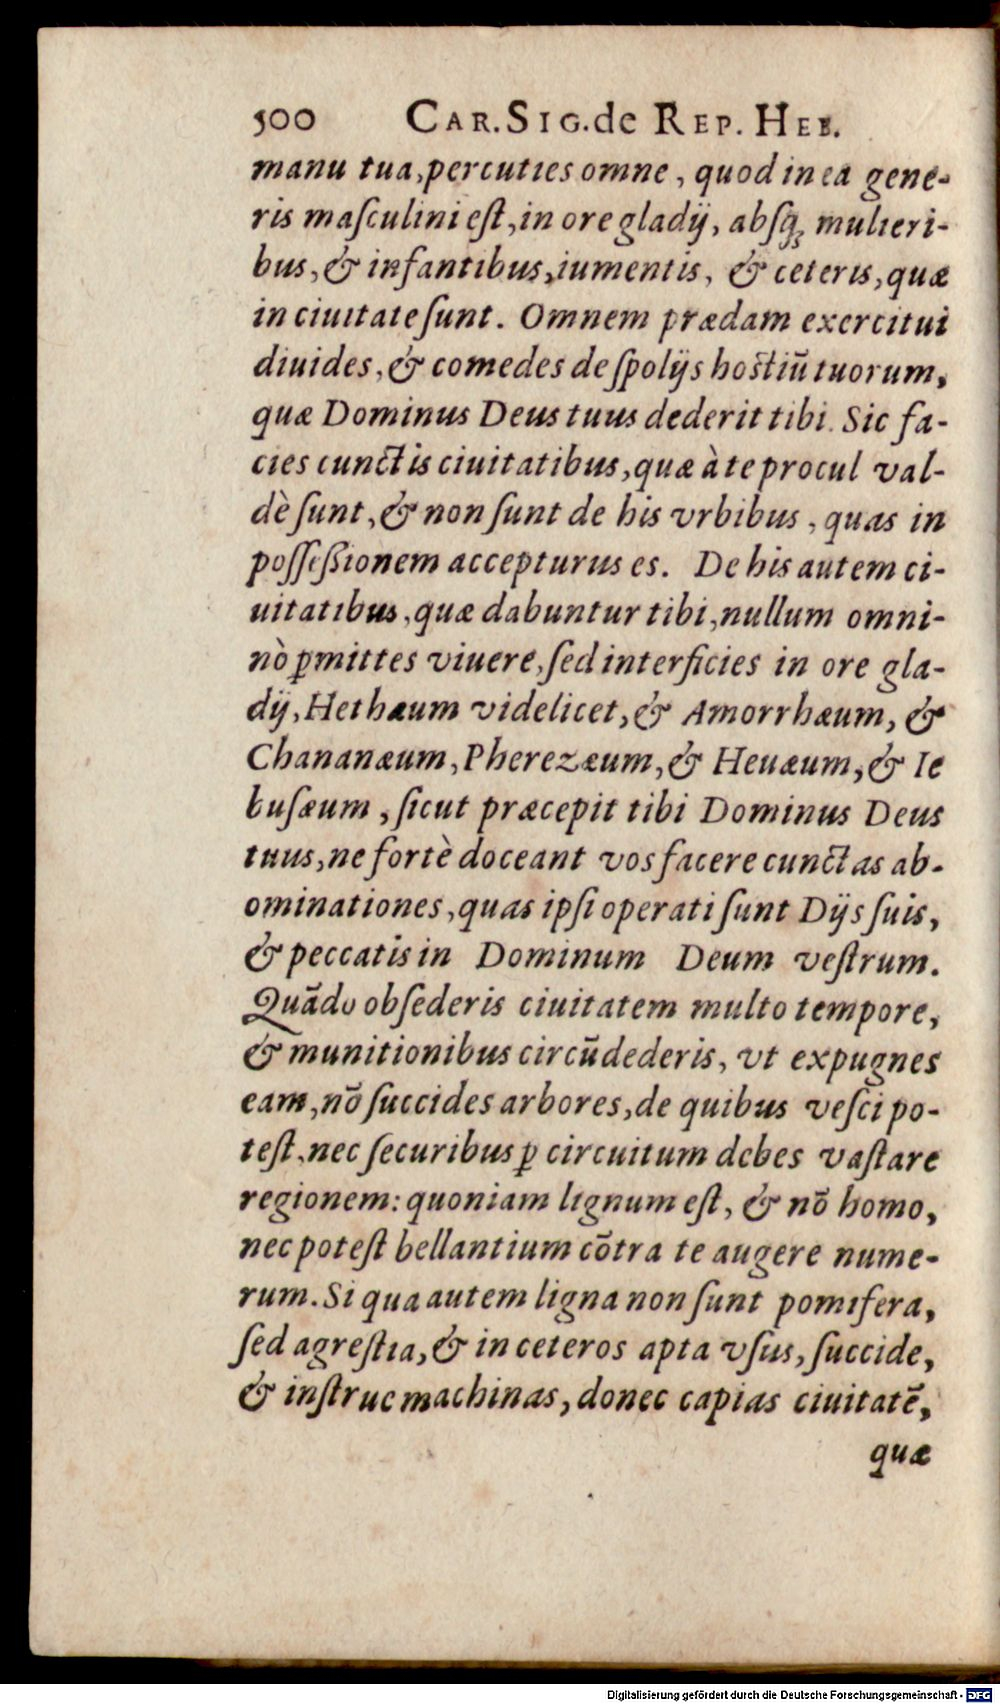 500 CAR. SIG. de REP. HEB.
manu tua, percuties omne, quod in ea gene-
ris maſculini eſt, in ore gladij, abſq; mulieri-
bus, & infantibus, iumentis, & ceteris, quæ
in ciuitate ſunt. Omnem prædam exercitui
diuides, & comedes de ſpolijs hoſtiū tuorum,
quæ Dominus Deus tuus dederit tibi. Sic fa-
cies cunctis ciuitatibus, quæ à te procul val-
dè ſunt, & non ſunt de his vrbibus, quas in
poſſeſſionem accepturus es. De his autem ci-
uitatibus, quæ dabuntur tibi, nullum omni-
nò ꝑmittes viuere, ſed interficies in ore gla-
dij, Hethæum videlicet, & Amorrhæum, &
Chananæum, Pherezæum, & Heuæum, & Ie
buſæum, ſicut præcepit tibi Dominus Deus
tuus, ne fortè doceant vos facere cunctas ab-
ominationes, quas ipſi operati ſunt Dijs ſuis,
& peccatis in Dominum Deum veſtrum.
Quādo obſederis ciuitatem multo tempore,
& munitionibus circūdederis, vt expugnes
eam, nō ſuccides arbores, de quibus veſci po-
teſt, nec ſecuribus ꝑ circuitum debes vaſtare
regionem: quoniam lignum eſt, & nō homo,
nec poteſt bellantium cōtra te augere nume-
rum. Si qua autem ligna non ſunt pomifera,
ſed agreſtia, & in ceteros apta vſus, ſuccide,
& inſtrue machinas, donec capias ciuitatē,
quæ
Digitalisierung gefördert durch die Deutsche Forschungsgemeinschaft - DFG